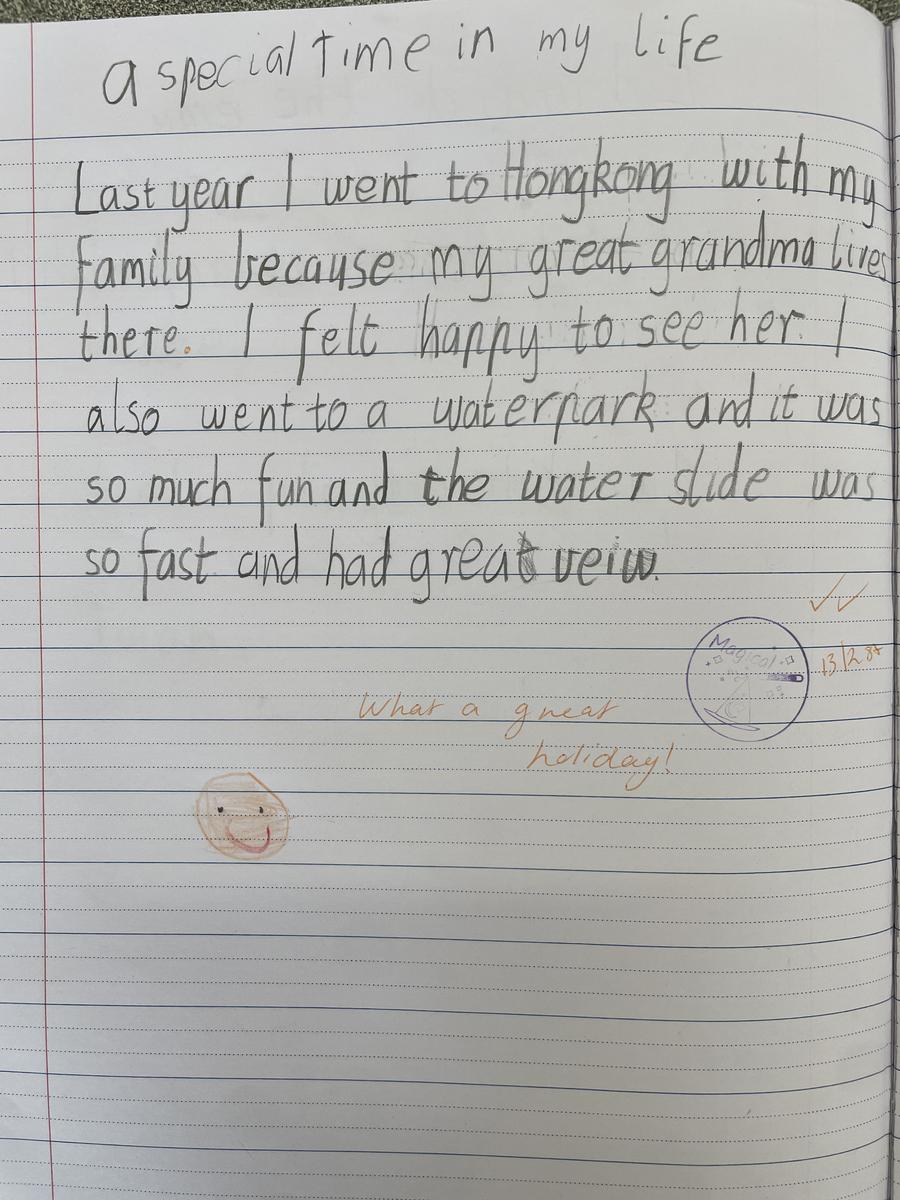 a special time in my life
Last year I went to Hongkong with my
family because my great grandma lives
there. I felt happy to see her. I
also went to a waterpark and it was
so much fun and the water slide was
so fast and had great veiw.
Magical
What a great
holiday!